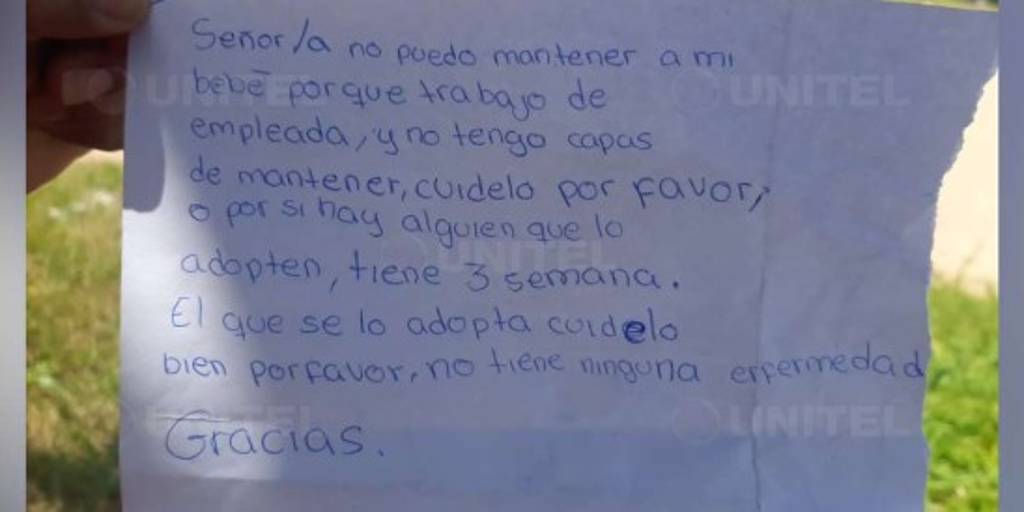 Señor/a no puedo mantener a mi
bebe porque trabajo de
empleada, y no tengo capas
de mantener, cuidelo por favor,
o por si hay alguien que lo
adopten, tiene 3 semana.
El que se lo adopta cuidelo
bien porfavor, no tiene ninguna enfermedad
Gracias.
UNITEL
UNITEL
UNITEL
UNITEL
UNITEL